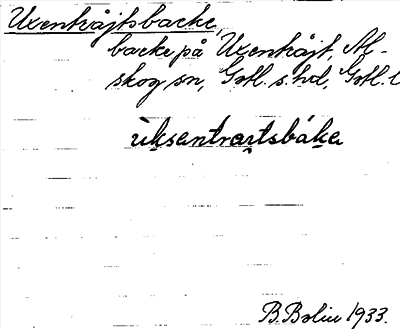 Uxenträjtsbacke,
backe på Uxenträjt, Al-
skog sn, Gotl. s. hd, Gotl. l
ùksentrartsbáka
B. Bolin 1933.